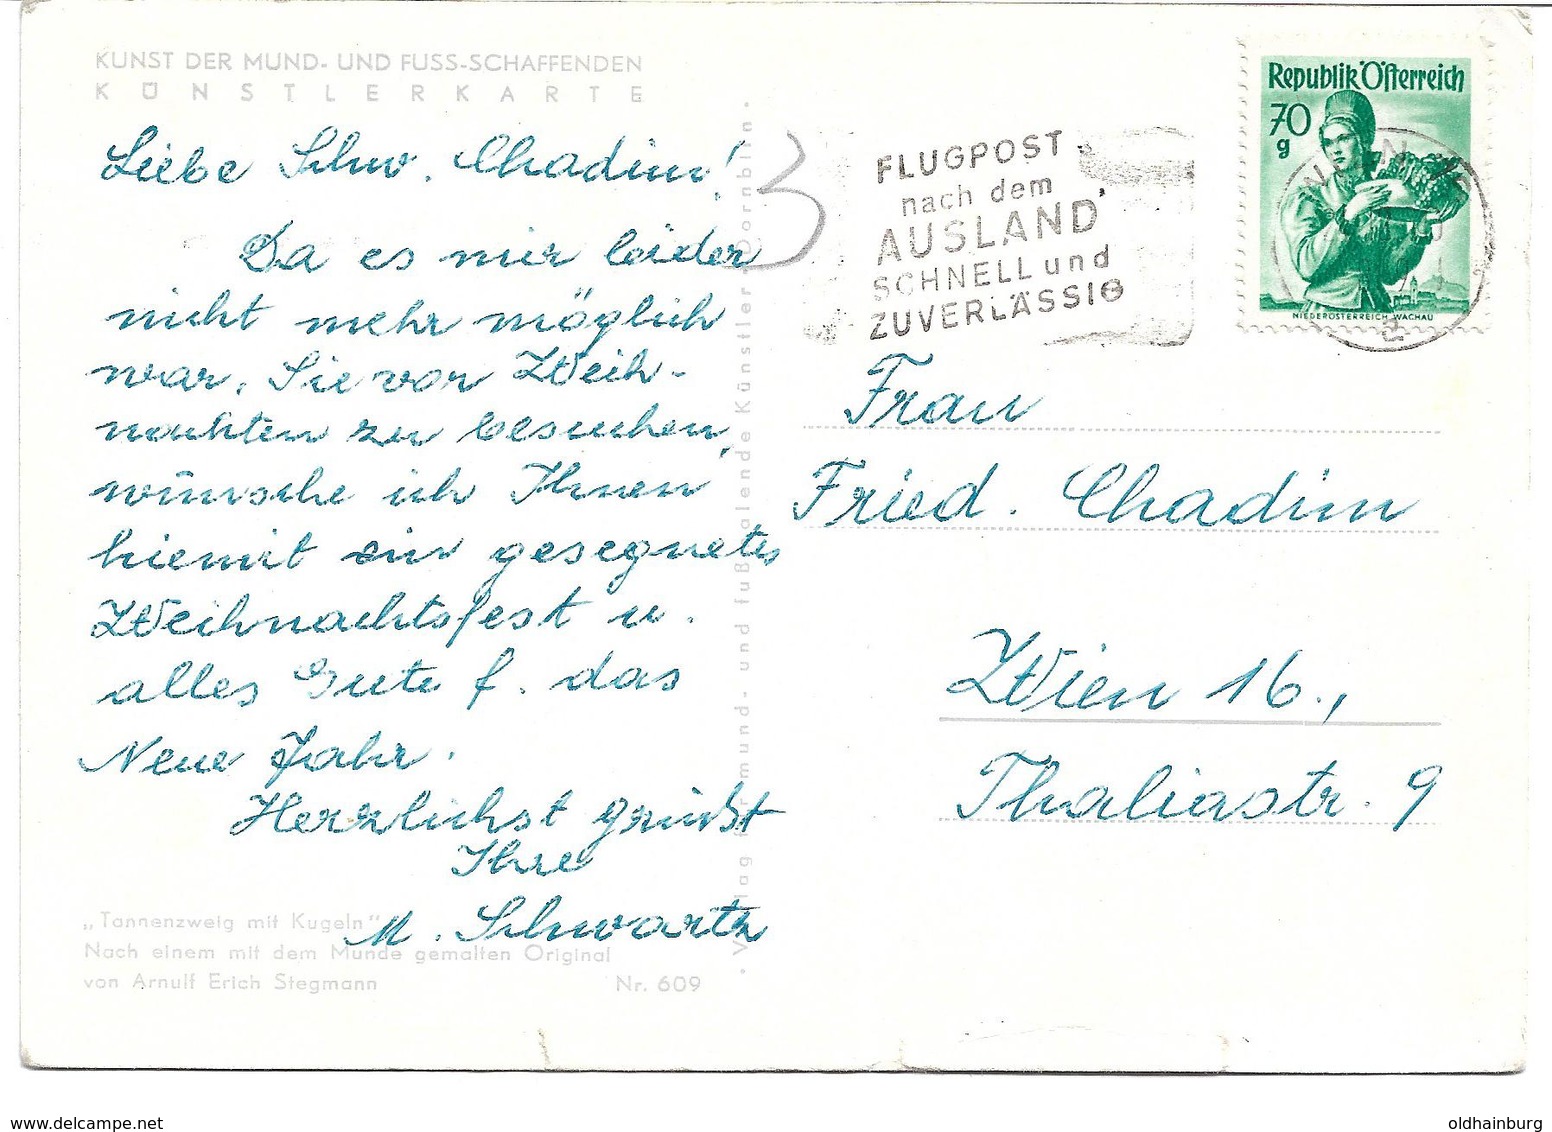 KUNST DER MUND- UND FUSS-SCHAFFENDEN
KÜNSTLERKARTE
Liebe Schw. Chadim!
Da es mir leider
nicht mehr möglich
war, Sie vor Weih-
nachten zu besuchen,
wünsche ich Ihnen
hiemit ein gesegnetes
Weihnachtsfest u.
alles Gute f. das
Neue Jahr.
Herzlichst grüßt
Ihre
M. Schwartz
„Tannenzweig mit Kugeln"
Nach einem mit dem Munde gemalten Original
von Arnulf Erich Stegmann
Nr. 609
• Verlag für mund- und fußmalende Künstler, Dornbirn •
3
FLUGPOST
nach dem
AUSLAND
SCHNELL und
ZUVERLÄSSIG
Republik Österreich
70
g
NIEDERÖSTERREICH, WACHAU
WIEN
Frau
Fried. Chadim
Wien 16.,
Thaliastr. 9
www.delcampe.net
oldhainburg